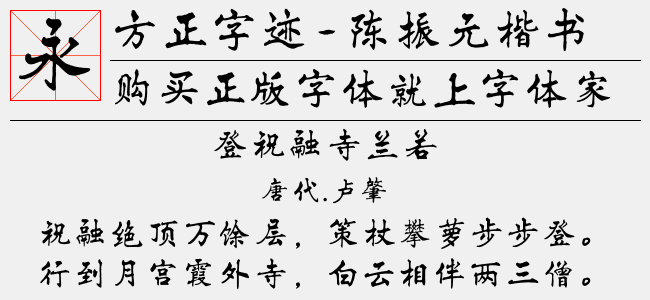 永
方正字迹-陈振元楷书
购买正版字体就上字体家
登祝融寺兰若
唐代.卢肇
祝融绝顶万馀层，策杖攀萝步步登。
行到月宫霞外寺，白云相伴两三僧。